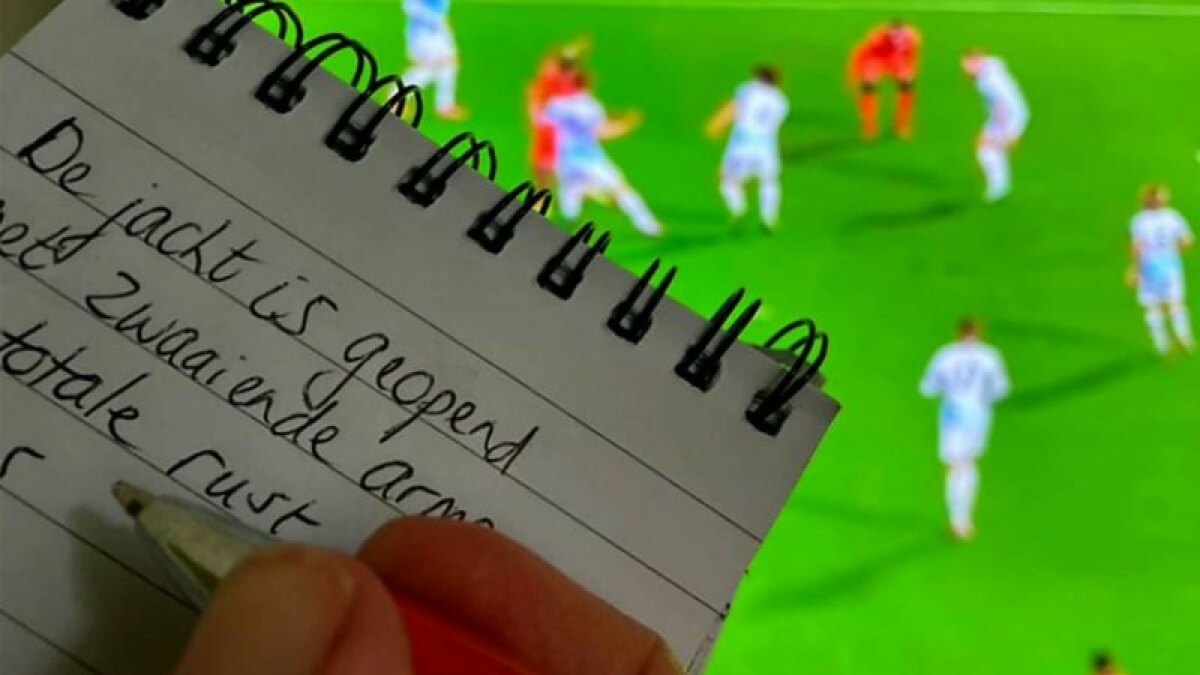 De jacht is geopend
zwaaiende
totale rust